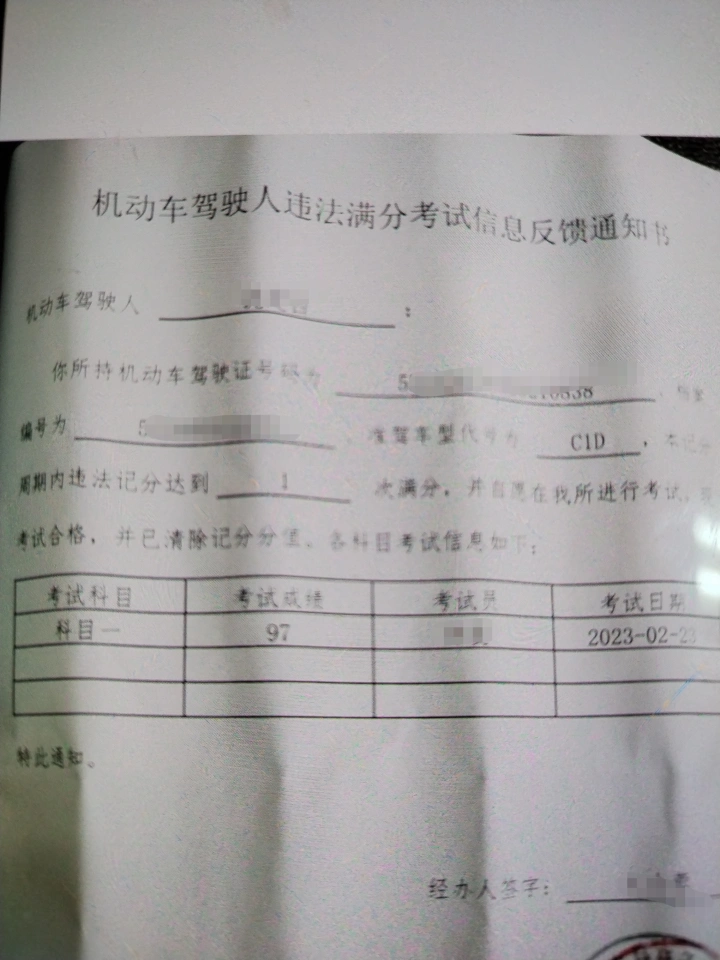 机动车驾驶人违法满分考试信息反馈通知书
机动车驾驶人 :
你所持机动车驾驶证号码为 5 0838 , 档案
编号为 5 , 准驾车型代号为 C1D , 本记分
周期内违法记分达到 1 次满分, 并自愿在我所进行考试, 现
考试合格, 并已清除记分分值。各科目考试信息如下:
考试科目 考试成绩 考试员 考试日期
科目一 97 2023-02-23
特此通知。
经办人签字: